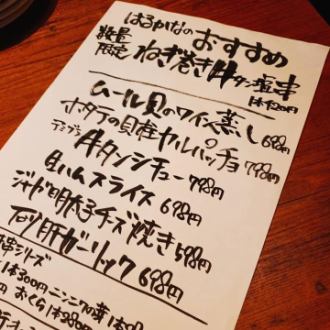 はるかなのおすすめ
数量限定 ねぎ巻き牛タン塩串
ムール貝のワイン蒸し 698円
ホタテの貝柱カルパッチョ 798円
牛タンシチュー 798円
生ハムスライス 698円
ジャガ明太子チーズ焼き 598円
砂肝ガーリック 698円
串シリーズ
1本300円 ニンニクの芽 1本
円 おくら 1本280円